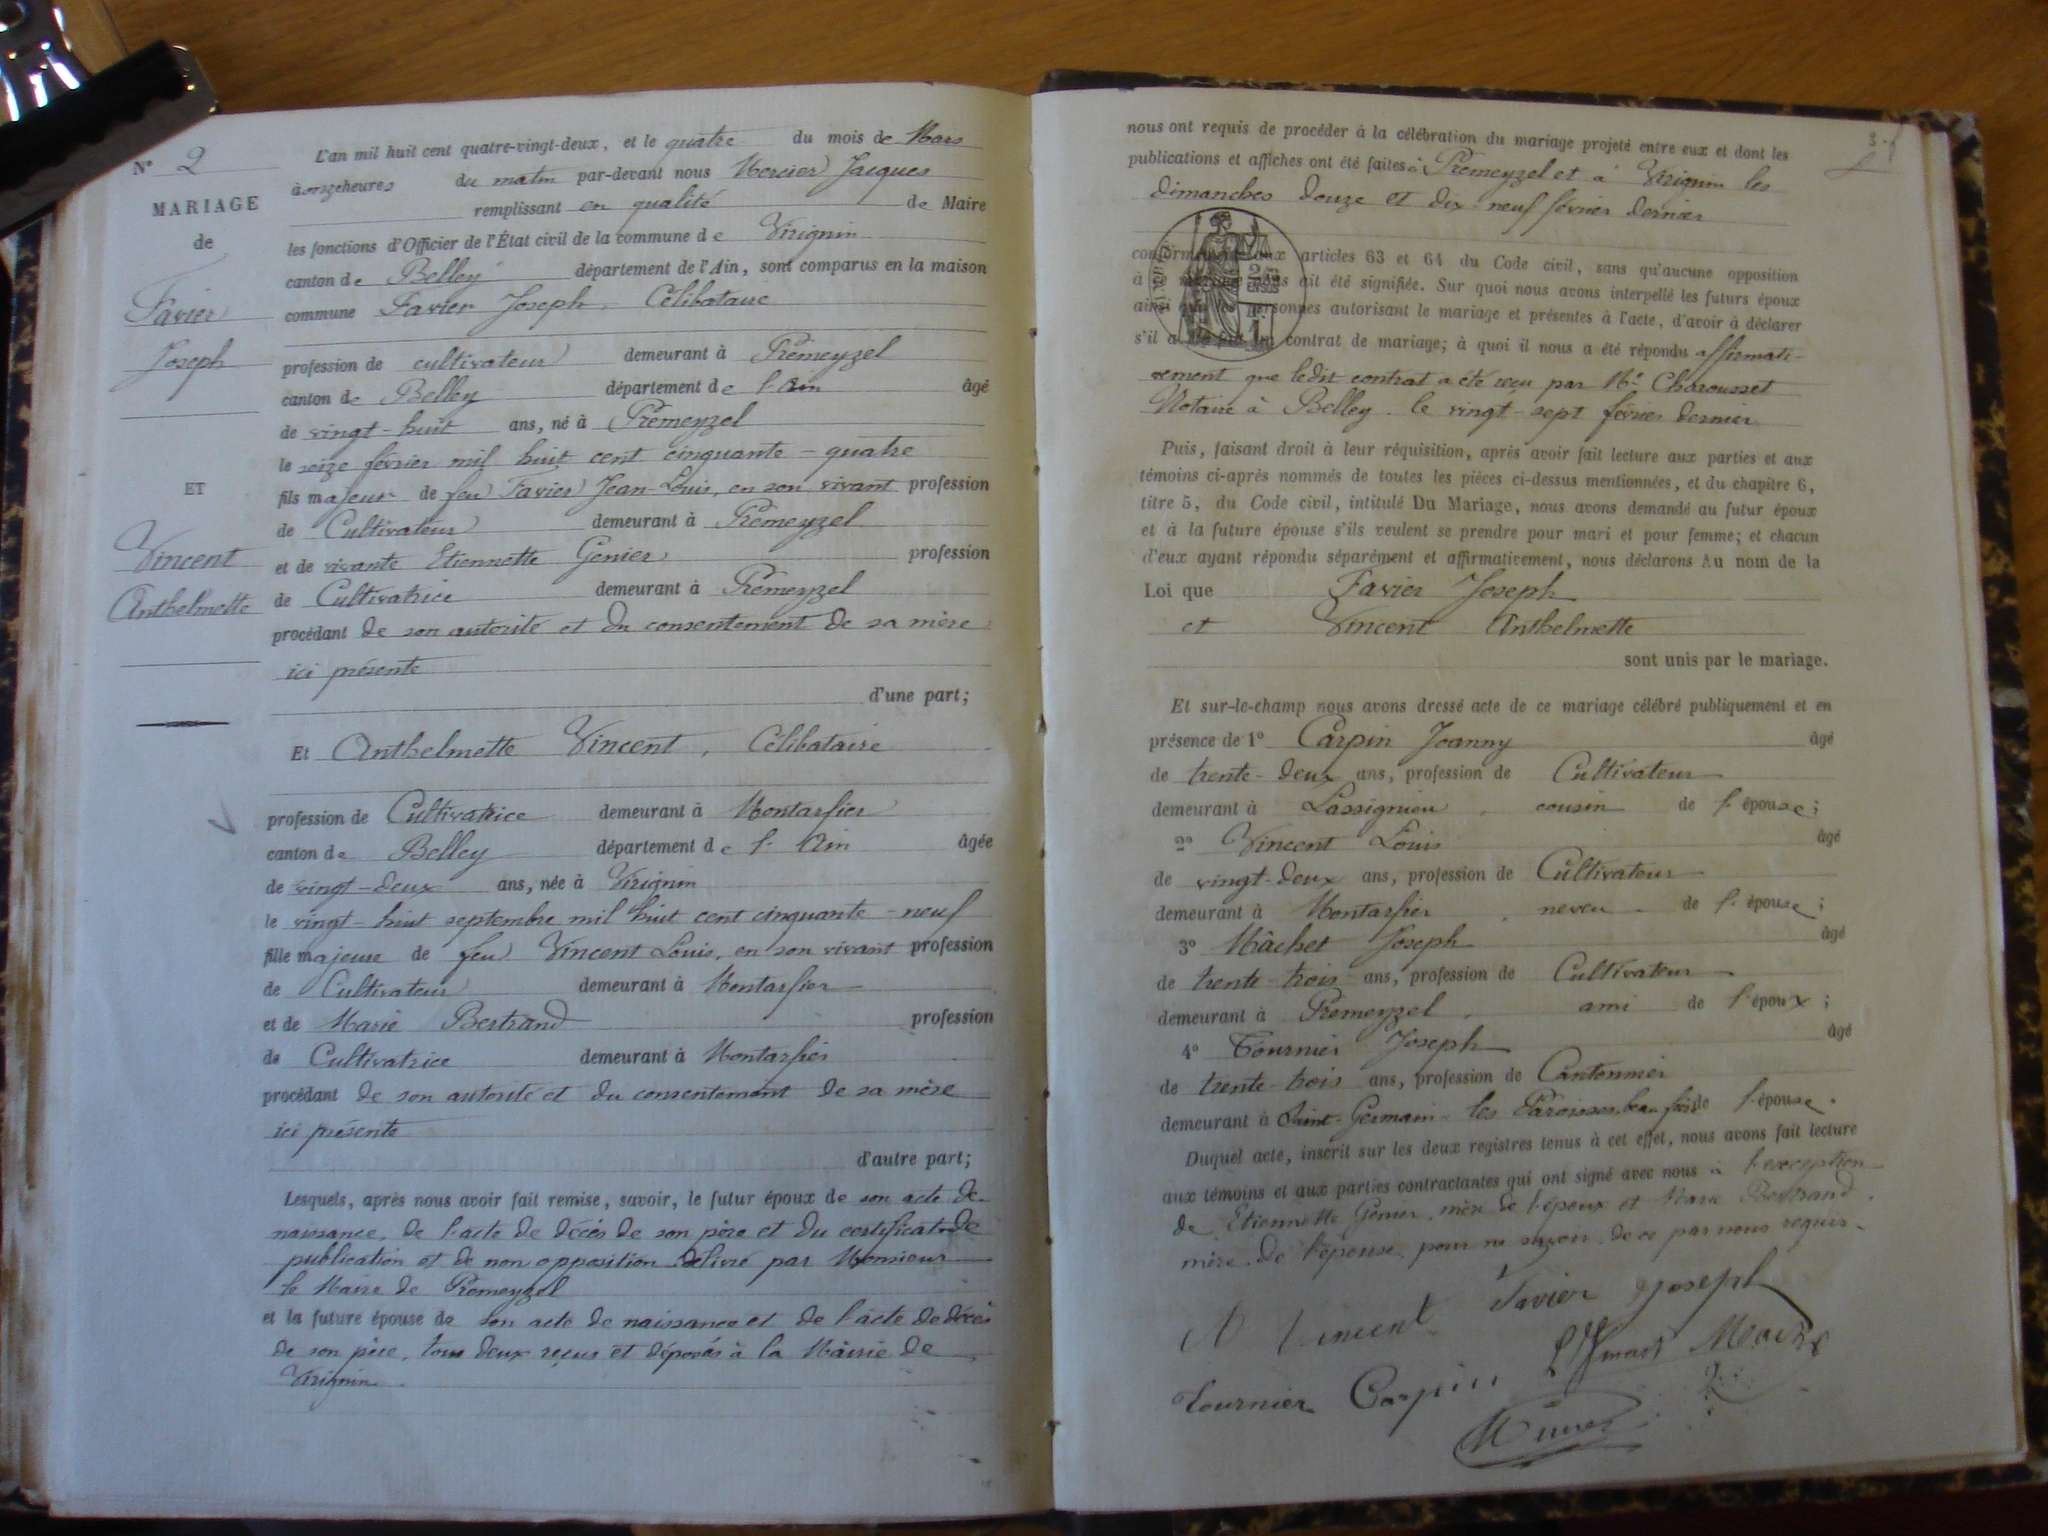 N° 2
MARIAGE
de
Favier
Joseph
ET
Vincent
Anthelmette
L'an mil huit cent quatre-vingt-deux, et le quatre du mois de Mars
à onze heures du matin par-devant nous Mercier Jacques
remplissant en qualité de Maire
les fonctions d'Officier de l'État civil de la commune de Virignin
canton de Belley département de l'Ain, sont comparus en la maison
commune Favier Joseph, Célibataire
profession de cultivateur demeurant à Prémeyzel
canton de Belley département de l'Ain âgé
de vingt-huit ans, né à Prémeyzel
le seize février mil huit cent cinquante-quatre
fils majeur de feu Favier Jean-Louis, en son vivant profession
de Cultivateur demeurant à Prémeyzel
et de vivante Etiennette Genier profession
de Cultivatrice demeurant à Prémeyzel
procédant de son autorité et du consentement de sa mère
ici présente
d'une part;
Et Anthelmette Vincent, Célibataire
profession de Cultivatrice demeurant à Montarfier
canton de Belley département de l'Ain âgée
de vingt-deux ans, née à Virignin
le vingt-huit septembre mil huit cent cinquante-neuf
fille majeure de feu Vincent Louis, en son vivant profession
de Cultivateur demeurant à Montarfier
et de Marie Bertrand profession
de Cultivatrice demeurant à Montarfier
procédant de son autorité et du consentement de sa mère
ici présente
d'autre part;
Lesquels, après nous avoir fait remise, savoir, le futur époux de son acte de
naissance, de l'acte de décès de son père et du certificat de
publication et de non opposition délivré par Monsieur
le Maire de Prémeyzel
et la future épouse de son acte de naissance et de l'acte de décès
de son père, tous deux reçus et déposés à la Mairie de
Virignin.
3
nous ont requis de procéder à la célébration du mariage projeté entre eux et dont les
publications et affiches ont été faites à Prémeyzel et à Virignin les
dimanches douze et dix-neuf février dernier
conformément aux articles 63 et 64 du Code civil, sans qu'aucune opposition
à ce mariage nous ait été signifiée. Sur quoi nous avons interpellé les futurs époux
ainsi que les personnes autorisant le mariage et présentes à l'acte, d'avoir à déclarer
s'il a été fait un contrat de mariage; à quoi il nous a été répondu affirmati-
vement que ledit contrat a été reçu par Me Charousset
Notaire à Belley le vingt-sept février dernier
Puis, faisant droit à leur réquisition, après avoir fait lecture aux parties et aux
témoins ci-après nommés de toutes les pièces ci-dessus mentionnées, et du chapitre 6,
titre 5, du Code civil, intitulé Du Mariage, nous avons demandé au futur époux
et à la future épouse s'ils veulent se prendre pour mari et pour femme; et chacun
d'eux ayant répondu séparément et affirmativement, nous déclarons Au nom de la
Loi que Favier Joseph
et Vincent Anthelmette
sont unis par le mariage.
Et sur-le-champ nous avons dressé acte de ce mariage célébré publiquement et en
présence de 1° Carpin Joanny âgé
de trente-deux ans, profession de Cultivateur
demeurant à Lassignieu, cousin de l'épouse;
2° Vincent Louis âgé
de vingt-deux ans, profession de Cultivateur
demeurant à Montarfier, neveu de l'épouse;
3° Mâchet Joseph âgé
de trente-trois ans, profession de Cultivateur
demeurant à Prémeyzel, ami de l'époux;
4° Tournier Joseph âgé
de trente-trois ans, profession de Cantonnier
demeurant à Saint-Germain-les Paroisses, beau frère de l'épouse.
Duquel acte, inscrit sur les deux registres tenus à cet effet, nous avons fait lecture
aux témoins et aux parties contractantes qui ont signé avec nous à l'exception
de Etiennette Genier, mère de l'époux et Marie Bertrand
mère de l'épouse pour ne savoir de ce par nous requis.
A Vincent Favier Joseph
Tournier Carpin
Mercier